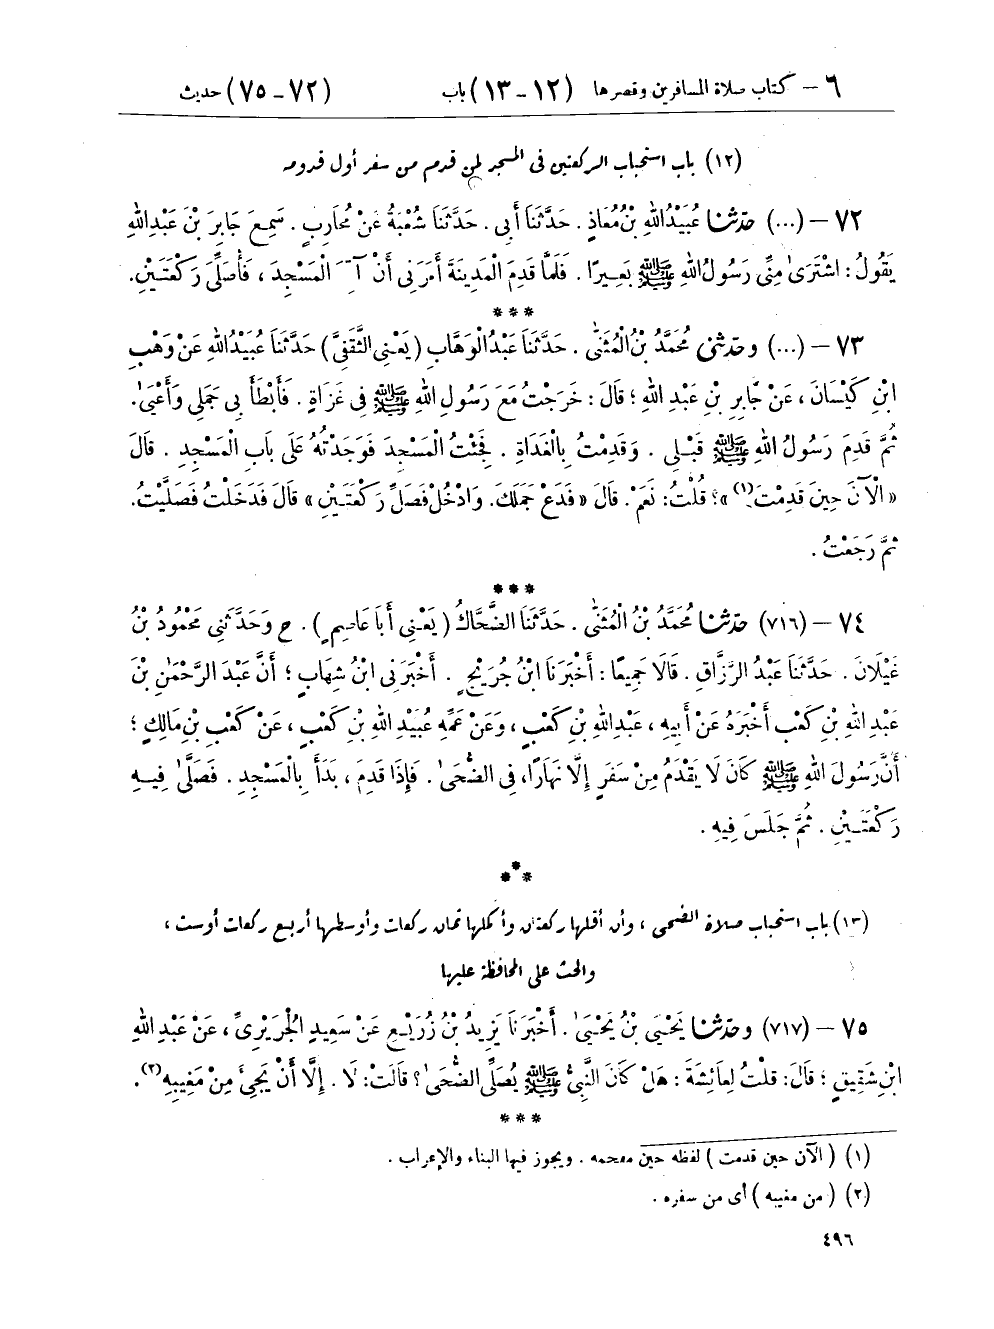 ٦ – كتاب صلاة المسافرين وقصرها (١٢ – ١٣) باب (٧٢ – ٧٥) حديث
(١٢) باب استحباب الركعتين فى المسجد لمن قدم من سفر أول قدومه
٧٢ – (...) حدّثنا عُبَيْدُ اللهِ بْنُ مُعَاذٍ . حَدَّثَنَا أَبِى . حَدَّثَنَا شُعْبَةُ عَنْ مُحَارِبٍ . سَمِعَ جَابِرَ بْنَ عَبْدِ اللهِ
يَقُولُ : اشْتَرَىٰ مِنِّى رَسُولُ اللهِ ﷺ بَعِيرًا . فَلَمَّا قَدِمَ الْمَدِينَةَ أَمَرَنِى أَنْ الْمَسْجِدَ ، فَأُصَلِّىَ رَكْعَتَيْنِ.
***
٧٣ – (...) وحدّثنى مُحَمَّدُ بْنُ الْمُثَنَّىٰ . حَدَّثَنَا عَبْدُ الْوَهَّابِ ( يَعْنِى الثَّقَفِىَّ ) حَدَّثَنَا عُبَيْدُ اللهِ عَنْ وَهْبِ
ابْنِ كَيْسَانَ ، عَنْ جَابِرِ بْنِ عَبْدِ اللهِ ؛ قَالَ : خَرَجْتُ مَعَ رَسُولِ اللهِ ﷺ فِى غَزَاةٍ . فَأَبْطَأَ بِى جَمَلِى وَأَعْيَىٰ.
ثُمَّ قَدِمَ رَسُولُ اللهِ ﷺ قَبْلِى . وَقَدِمْتُ بِالْغَدَاةِ . فَجِئْتُ الْمَسْجِدَ فَوَجَدْتُهُ عَلَى بَابِ الْمَسْجِدِ . قَالَ
« الْآنَ حِينَ قَدِمْتَ(١) »؟ قُلْتُ: نَعَمْ. قَالَ « فَدَعْ جَمَلَكَ. وَادْخُلْ فَصَلِّ رَكْعَتَيْنِ » قَالَ فَدَخَلْتُ فَصَلَّيْتُ.
ثُمَّ رَجَعْتُ .
***
٧٤ – (٧١٦) حدّثنا مُحَمَّدُ بْنُ الْمُثَنَّىٰ . حَدَّثَنَا الضَّحَّاكُ ( يَعْنِى أَبَا عَاصِمٍ ) . ح وَحَدَّثَنِى مَحْمُودُ بْنُ
غَيْلَانَ . حَدَّثَنَا عَبْدُ الرَّزَّاقِ . قَالَا جَمِيعًا : أَخْبَرَنَا ابْنُ جُرَيْجٍ . أَخْبَرَنِى ابْنُ شِهَابٍ ؛ أَنَّ عَبْدَ الرَّحْمَٰنِ بْنَ
عَبْدِ اللهِ بْنِ كَعْبٍ أَخْبَرَهُ عَنْ أَبِيهِ ، عَبْدِ اللهِ بْنِ كَعْبٍ ، وَعَنْ عَمِّهِ عُبَيْدِ اللهِ بْنِ كَعْبٍ ، عَنْ كَعْبِ بْنِ مَالِكٍ ؛
أَنَّ رَسُولَ اللهِ ﷺ كَانَ لَا يَقْدَمُ مِنْ سَفَرٍ إِلَّا نَهَارًا، فِى الضُّحَىٰ . فَإِذَا قَدِمَ ، بَدَأَ بِالْمَسْجِدِ . فَصَلَّىٰ فِيهِ
رَكْعَتَيْنِ . ثُمَّ جَلَسَ فِيهِ .
***
(١٣) باب استحباب صلاة الضحى ، وأن أقلها ركعتان وأكملها ثمان ركعات وأوسطها أربع ركعات أوست ،
والحث على المحافظة عليها
٧٥ – (٧١٧) وحدّثنا يَحْيَى بْنُ يَحْيَىٰ . أَخْبَرَنَا يَزِيدُ بْنُ زُرَيْعٍ عَنْ سَعِيدٍ الْجُرَيْرِىِّ ، عَنْ عَبْدِ اللهِ
ابْنِ شَقِيقٍ ؛ قَالَ: قُلْتُ لِعَائِشَةَ : هَلْ كَانَ النَّبِىُّ ﷺ يُصَلِّى الضُّحَىٰ؟ قَالَتْ: لَا . إِلَّا أَنْ يَجِىءَ مِنْ مَغِيبِهِ(٢).
***
(١) ( الآن حين قدمت ) لفظه حين مقحمه . ويجوز فيها البناء والإعراب .
(٢) ( من مغيبه ) أى من سفره .
٤٩٦